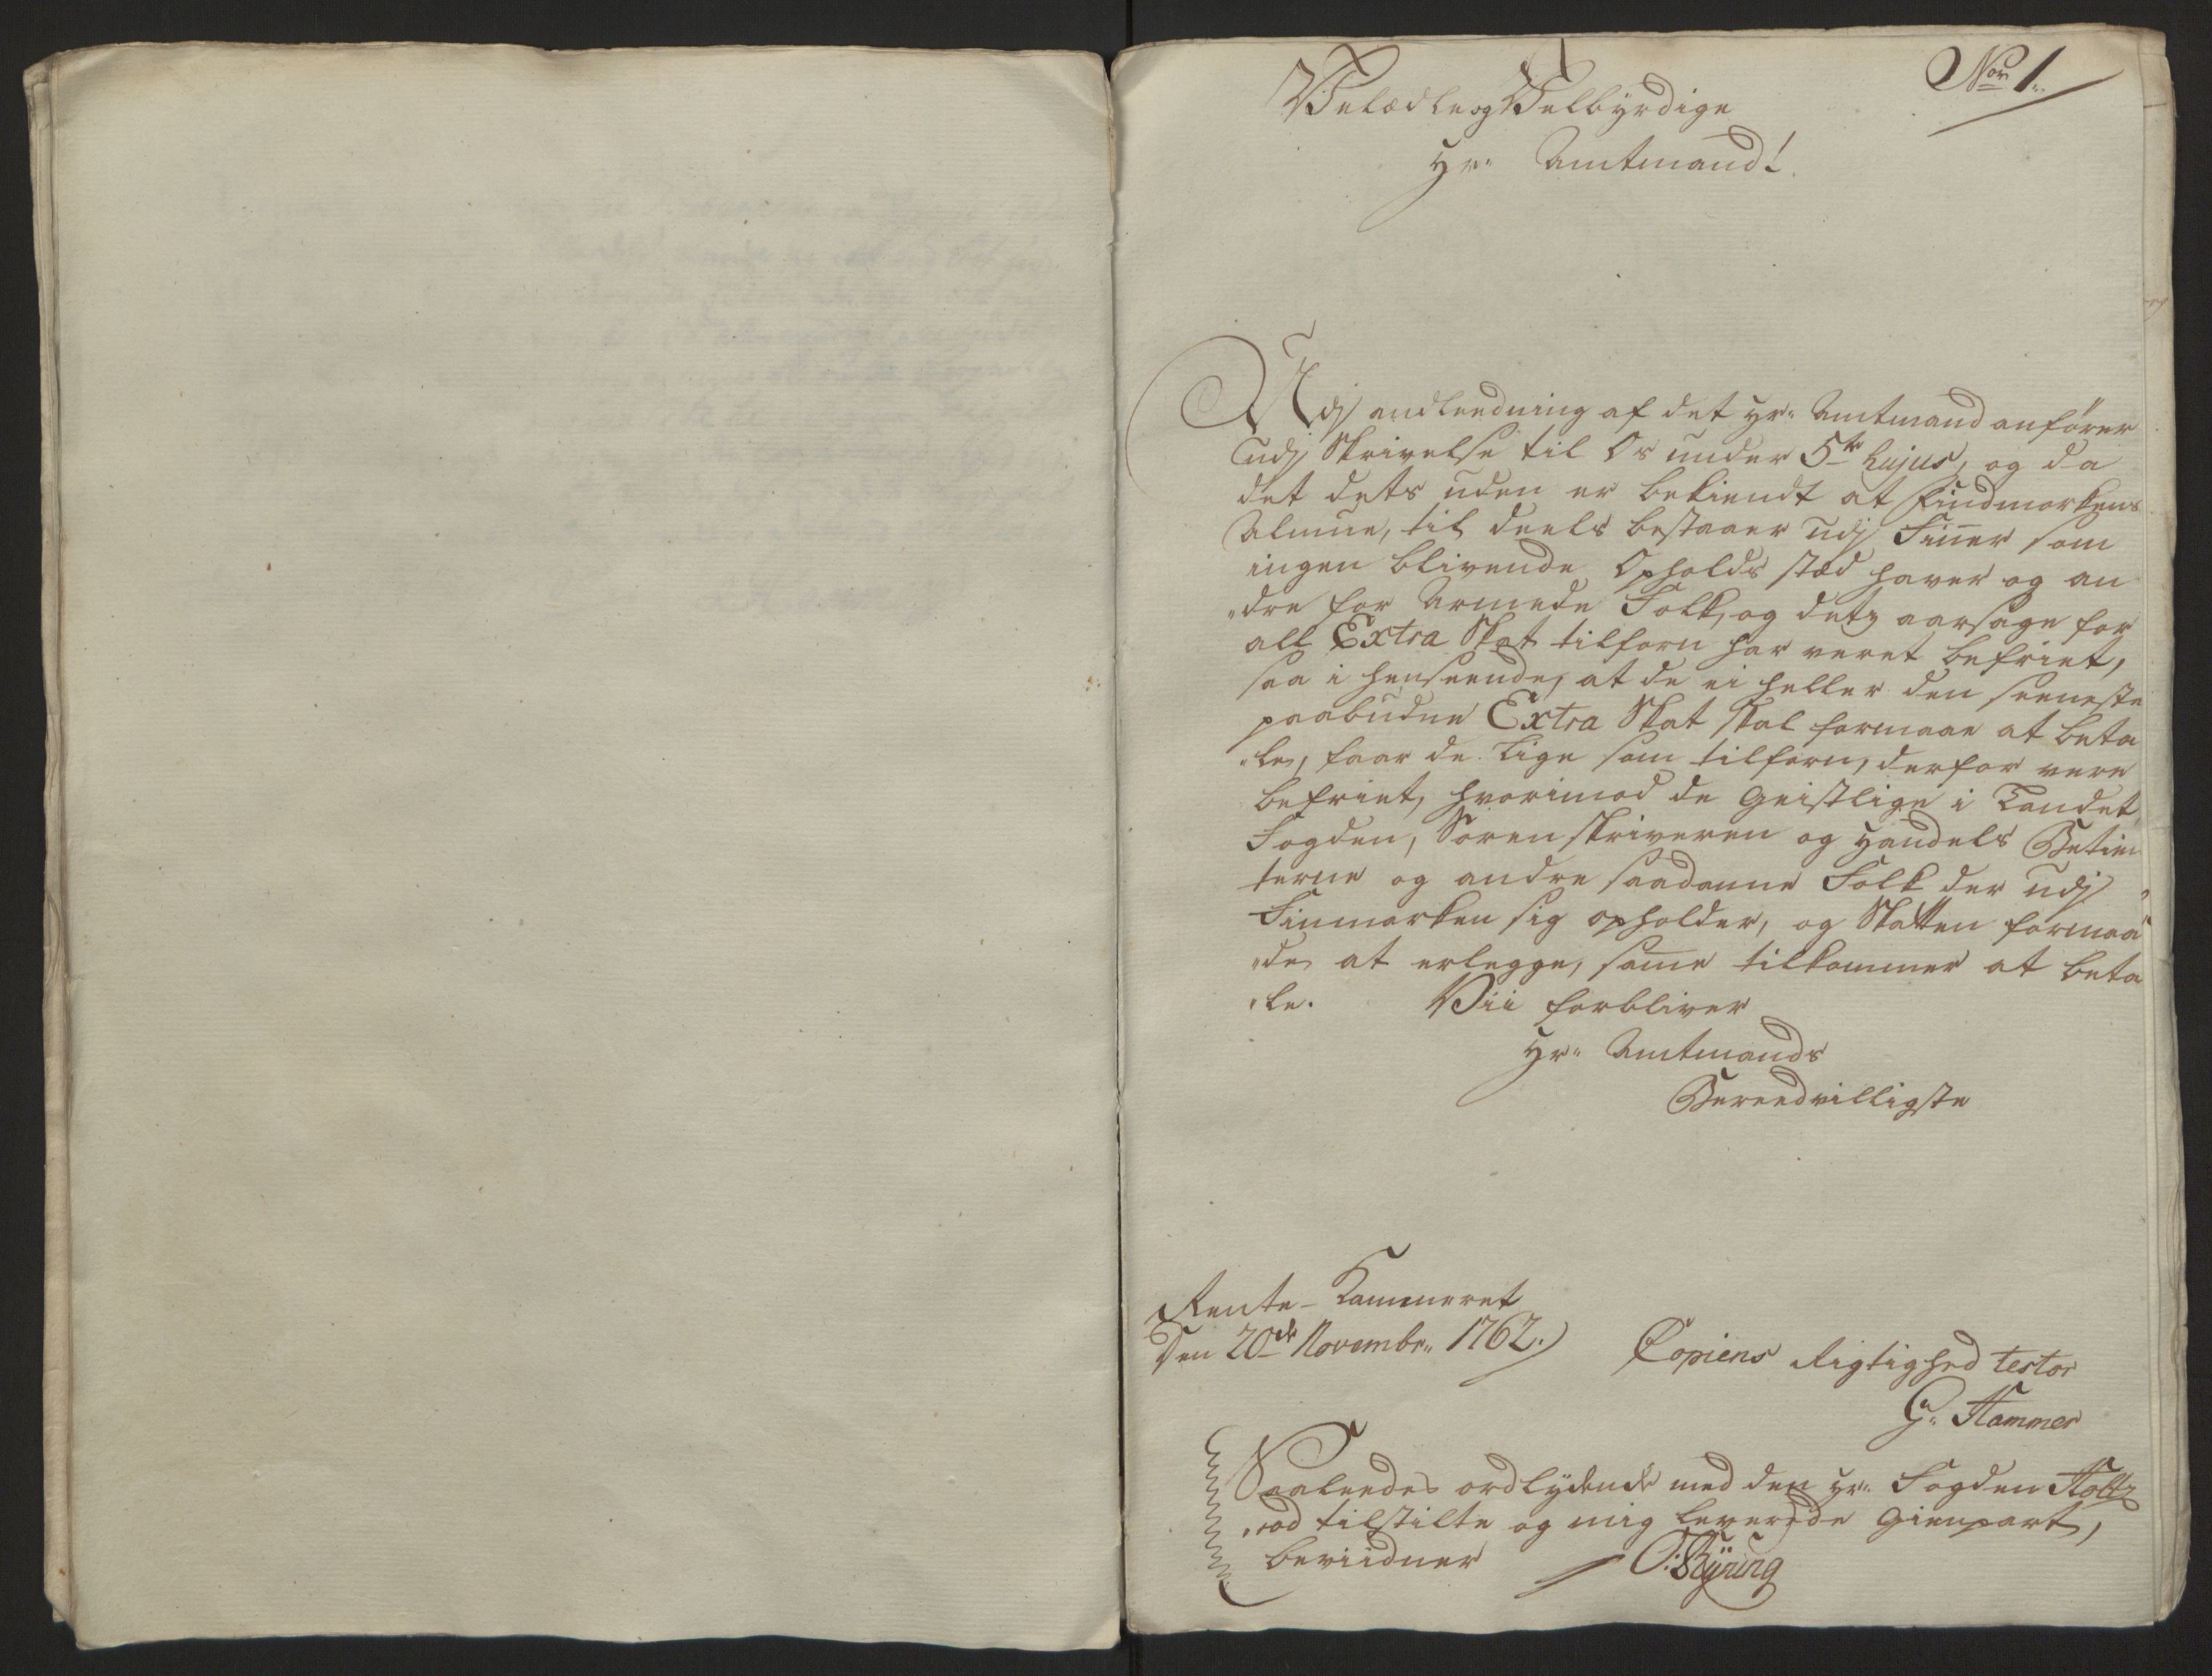 No: 1.
Velædle og Velbyrdige
Hr: Amtmand!
Udj andleedning af det Hr: Amtmand anfører
udj Skrivelse til Os under 5te hujus, og da
det dets uden er bekiendt at Findmarkens
Almue, til deels bestaaer udj Finer som
ingen blivende Opholds stæd haver og an
"dre for Armede Folk, og dets aarsage for
all Extra Skat tilforn har veret befriet,
saa i henseende, at de ei heller den seeneste
paabudne Extra Skat skal formaae at beta
"le, faar de lige som tilforn, derfor vere
befriet, hvorimod de Geistlige i Landet,
Fogden, Sorenskriveren og Handels Betien
terne og andre saadanne Folk der udj
Finmarken sig opholder, og Skatten formaa
"de at erlegge, same tilkommer at beta
"le. Vii forbliver
Hr: Amtmands
Bereedvilligste
Rente-Kammeret
Den 20de Novembr: 1762.
Copiens Rigtighed testor
G: Hammer
Saaleedes ordlydende med den Hr: Fogden Holtz
"od tilstilte og mig leverede Gienpart,
beviidner O: Bÿring